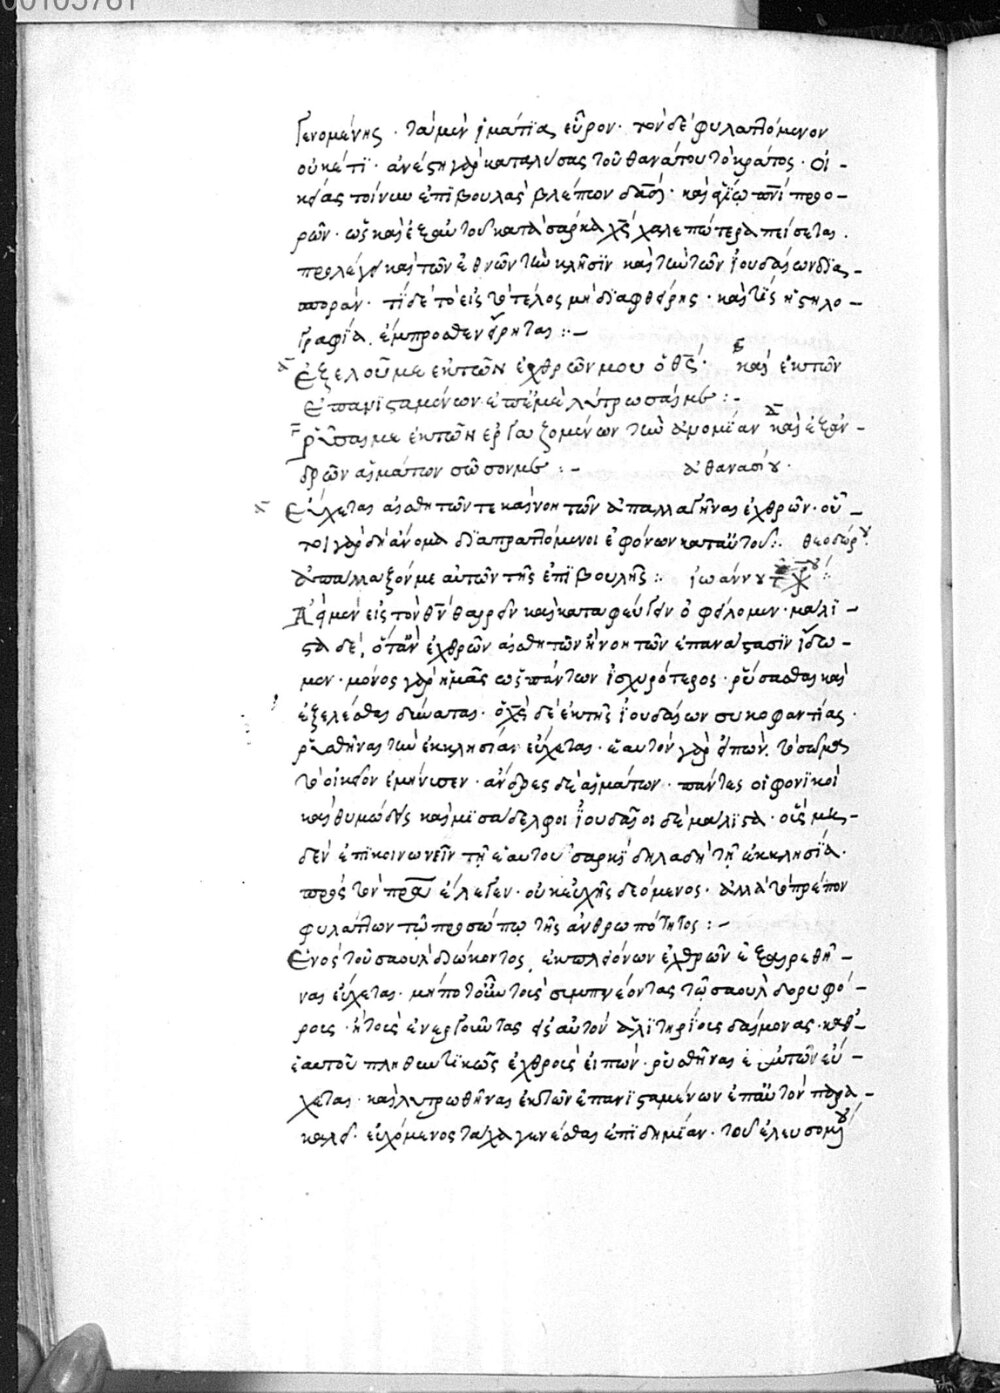 00105761
γενομένης · τὰ μὲν ἱμάτϊα εὗρον · τὸν δὲ φυλαττόμενον
οὐκέτϊ · ἀνέστη γὰρ καταλύσας τοῦ θανάτου τὸ κράτος · οἱ -
κείας τοίνυν ἐπϊβουλὰς βλέπων δᾱδ · καὶ τῷ πν̄ι προο -
ρῶν · ὡς καὶ ἐξ αὐτοῦ κατὰ σάρκα χς̄ χαλεπώτερα πείσεται ·
προλέγει καὶ τῶν ἐθνῶν τὴν κλῆσϊν καὶ τὴν τῶν ἰουδαίων δϊα -
σποράν · τί δὲ τὸ εἰς τὸ τέλος μὴ δϊαφθείρης · καὶ τίς ἡ στηλο -
γραφία ἔμπροσθεν εἴρηται : -
Ἐξελοῦ με ἐκ τῶν ἐχθρῶν μου ὁ θς̄ · καὶ ἐκ τῶν
ἐπανϊσταμένων ἐπ' ἐμὲ λύτρωσαί με : -
ῥῦσαί με ἐκ τῶν ἐργαζομένων τὴν ἀνομίαν καὶ ἐξ ἀν -
δρῶν αἱμάτων σῶσον με : - ἀθανασίου ·
Εὔχεται αἰσθητῶν τε καὶ νοητῶν ἀπαλλαγῆναι ἐχθρῶν · οὗ -
τοι γὰρ δὴ ἄνομα δϊαπραττόμενοι ἐφόνων κατ' αὐτοῦ : θεοδώρου
ἀπάλλαξόν με αὐτῶν τῆς ἐπϊβουλῆς : ἰωάννου
Ἀεὶ μὲν εἰς τὸν θν̄ θαρρεῖν καὶ καταφεύγειν ὀφείλομεν · μάλϊ -
στα δὲ, ὅταν ἐχθρῶν αἰσθητῶν ἢ νοητῶν ἐπανάστασϊν ἴδω -
μεν · μόνος γὰρ ἡμᾶς ὡς πάντων ἰσχυρότερος · ῥύσασθαι καὶ
ἐξελέσθαι δύναται · ὁ χς̄ δὲ ἐκ τῆς ἰουδαίων συκοφαντίας ·
ῥυσθῆναι τὴν ἐκκλησίαν εὔχεται · ἑαυτὸν γὰρ εἰπὼν · τὸ σῶμα
τὸ οἰκεῖον ἐμήνυσεν · ἄνδρες δὲ αἱμάτων · πάντες οἱ φονϊκοὶ
καὶ θυμώδεις καὶ μϊσάδελφοι ἰουδαῖοι δὲ μάλϊστα · οἷς μη -
δὲν ἐπϊκοινωνεῖν τῇ ἑαυτοῦ σαρκὶ δηλαδὴ τῇ ἐκκλησία ·
πρὸς τὸν πρ̄α ἔλεγεν · οὐκ εὐχῆς δεόμενος · ἀλλὰ τὸ πρέπον
φυλάττων τῷ προσώπῳ τῆς ἀνθρωπότητος : -
Ἑνὸς τοῦ σαοὺλ διώκοντος, ἐκ πλειόνων ἐχθρῶν ἐξαιρεθῆ -
ναι εὔχεται · μήποτ' οὖν τοὺς συμπνέοντας τῷ σαοὺλ δορυφό -
ροις · ἢ τοὺς ἐνεργοῦντας εἰς αὐτὸν ἀλϊτηρίοις δαίμονας · καθ' -
ἑαυτοῦ πληθυντϊκῶς ἐχθροὺς εἰπὼν · ῥυσθῆναι ἐξ αὐτῶν εὔ -
χεται · καὶ λυτρωθῆναι ἐκ τῶν ἐπανϊσταμένων ἐπ' αὐτὸν παρα -
καλεῖ · εὐχόμενος τάχα γενέσθαι ἐπϊδημίαν · τοῦ ἐλευσομένου